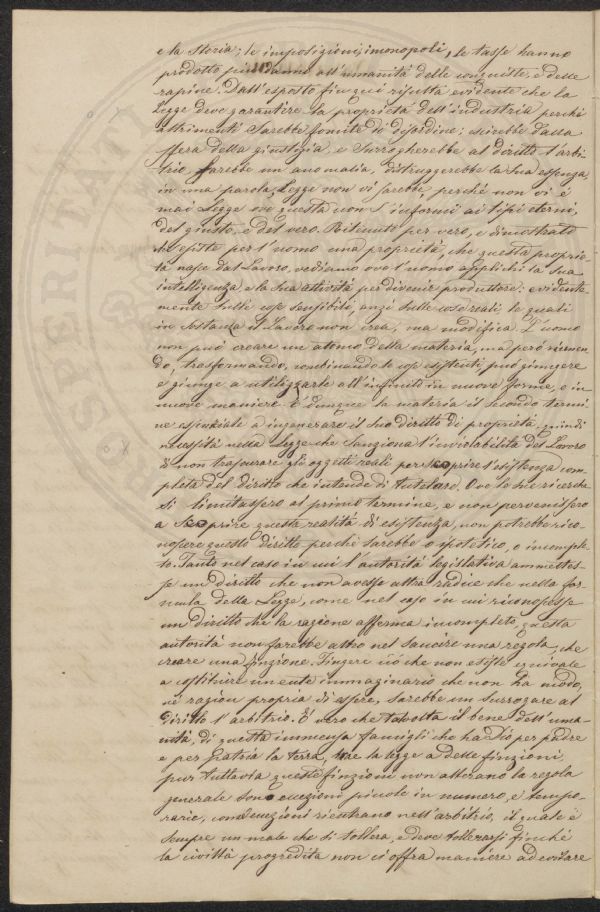 e la storia; le imposizioni, i monopoli, le tasse hanno
prodotto più danno all'umanità delle conquiste, e delle
rapine. Dall'esposto fin qui risulta evidente che la
Legge deve garantire la proprietà dell'industria perchè
altrimenti sarebbe fomite di disordine; uscirebbe dalla
sfera della giustizia, e surrogherebbe al diritto l'arbi-
trio, sarebbe un anomalia, distruggerebbe la sua essenza
in una parola, Legge non vi sarebbe, perchè non vi è
mai Legge se questa non s'informi ai tipi eterni,
del giusto, e del vero. Ritenuto per vero, e dimostrato
che esiste per l'uomo una proprietà, che questa proprie-
tà nasce dal Lavoro, vediamo ove l'uomo applichi la sua
intelligenza, e la sua attività per divenir produttore: evidente-
mente sulle cose sensibili, anzi sulle cose reali, le quali
in sostanza il Lavoro non crea, ma modifica. L'uomo
non può creare un atomo della materia, ma però riunen-
do, trasformando, combinando le cose esistenti può giungere
e giunge a utilizzarle all'infinito in nuove forme, e in
nuove maniere. È dunque la materia il secondo termi-
ne essenziale a ingenerare il suo diritto di proprietà, quindi
necessità nella Legge che sanziona l'inviolabilità del Lavoro
di non trascurare gli oggetti reali per scoprire l'esistenza com-
pleta del diritto che intende di tutelare. Ove le sue ricerche
si limitassero al primo termine, e non pervenissero
a scoprire questa realità di esistenza, non potrebbe rico-
noscere questo diritto perchè sarebbe o ipotetico, o incomple-
to. Tanto nel caso in cui l'autorità legislativa ammettes-
se un diritto che non avesse altra radice che nella for-
mula della Legge, come nel caso in cui riconoscesse
un diritto che la ragione afferma incompleto, questa
autorità non farebbe altro nel sancire una regola, che
creare una finzione. Fingere ciò che non esiste equivale
a costituire un ente immaginario che non ha modo,
nè ragion propria di essere, sarebbe un surrogare al
diritto l'arbitrio. È vero che talvolta il bene dell'uma-
nità, di questa immensa famiglia che ha Dio per padre
e per patria la terra, trae la legge a delle finzioni
pur tuttavia queste finzioni non alterano la regola
generale sono eccezioni piccole in numero, e tempo-
rarie, come eccezioni rientrano nell'arbitrio, il quale è
sempre un male che si tollera, e deve tollerarsi finchè
la civiltà progredita non ci offra maniere ad evitare